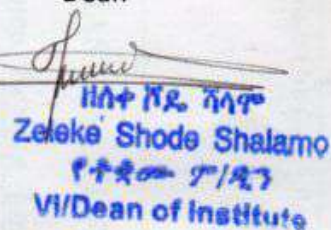 Dean
ዘለቀ ሾዴ ሻላሞ
Zeleke Shode Shalamo
የተቋሙ ም/ዲን
VI/Dean of Institute